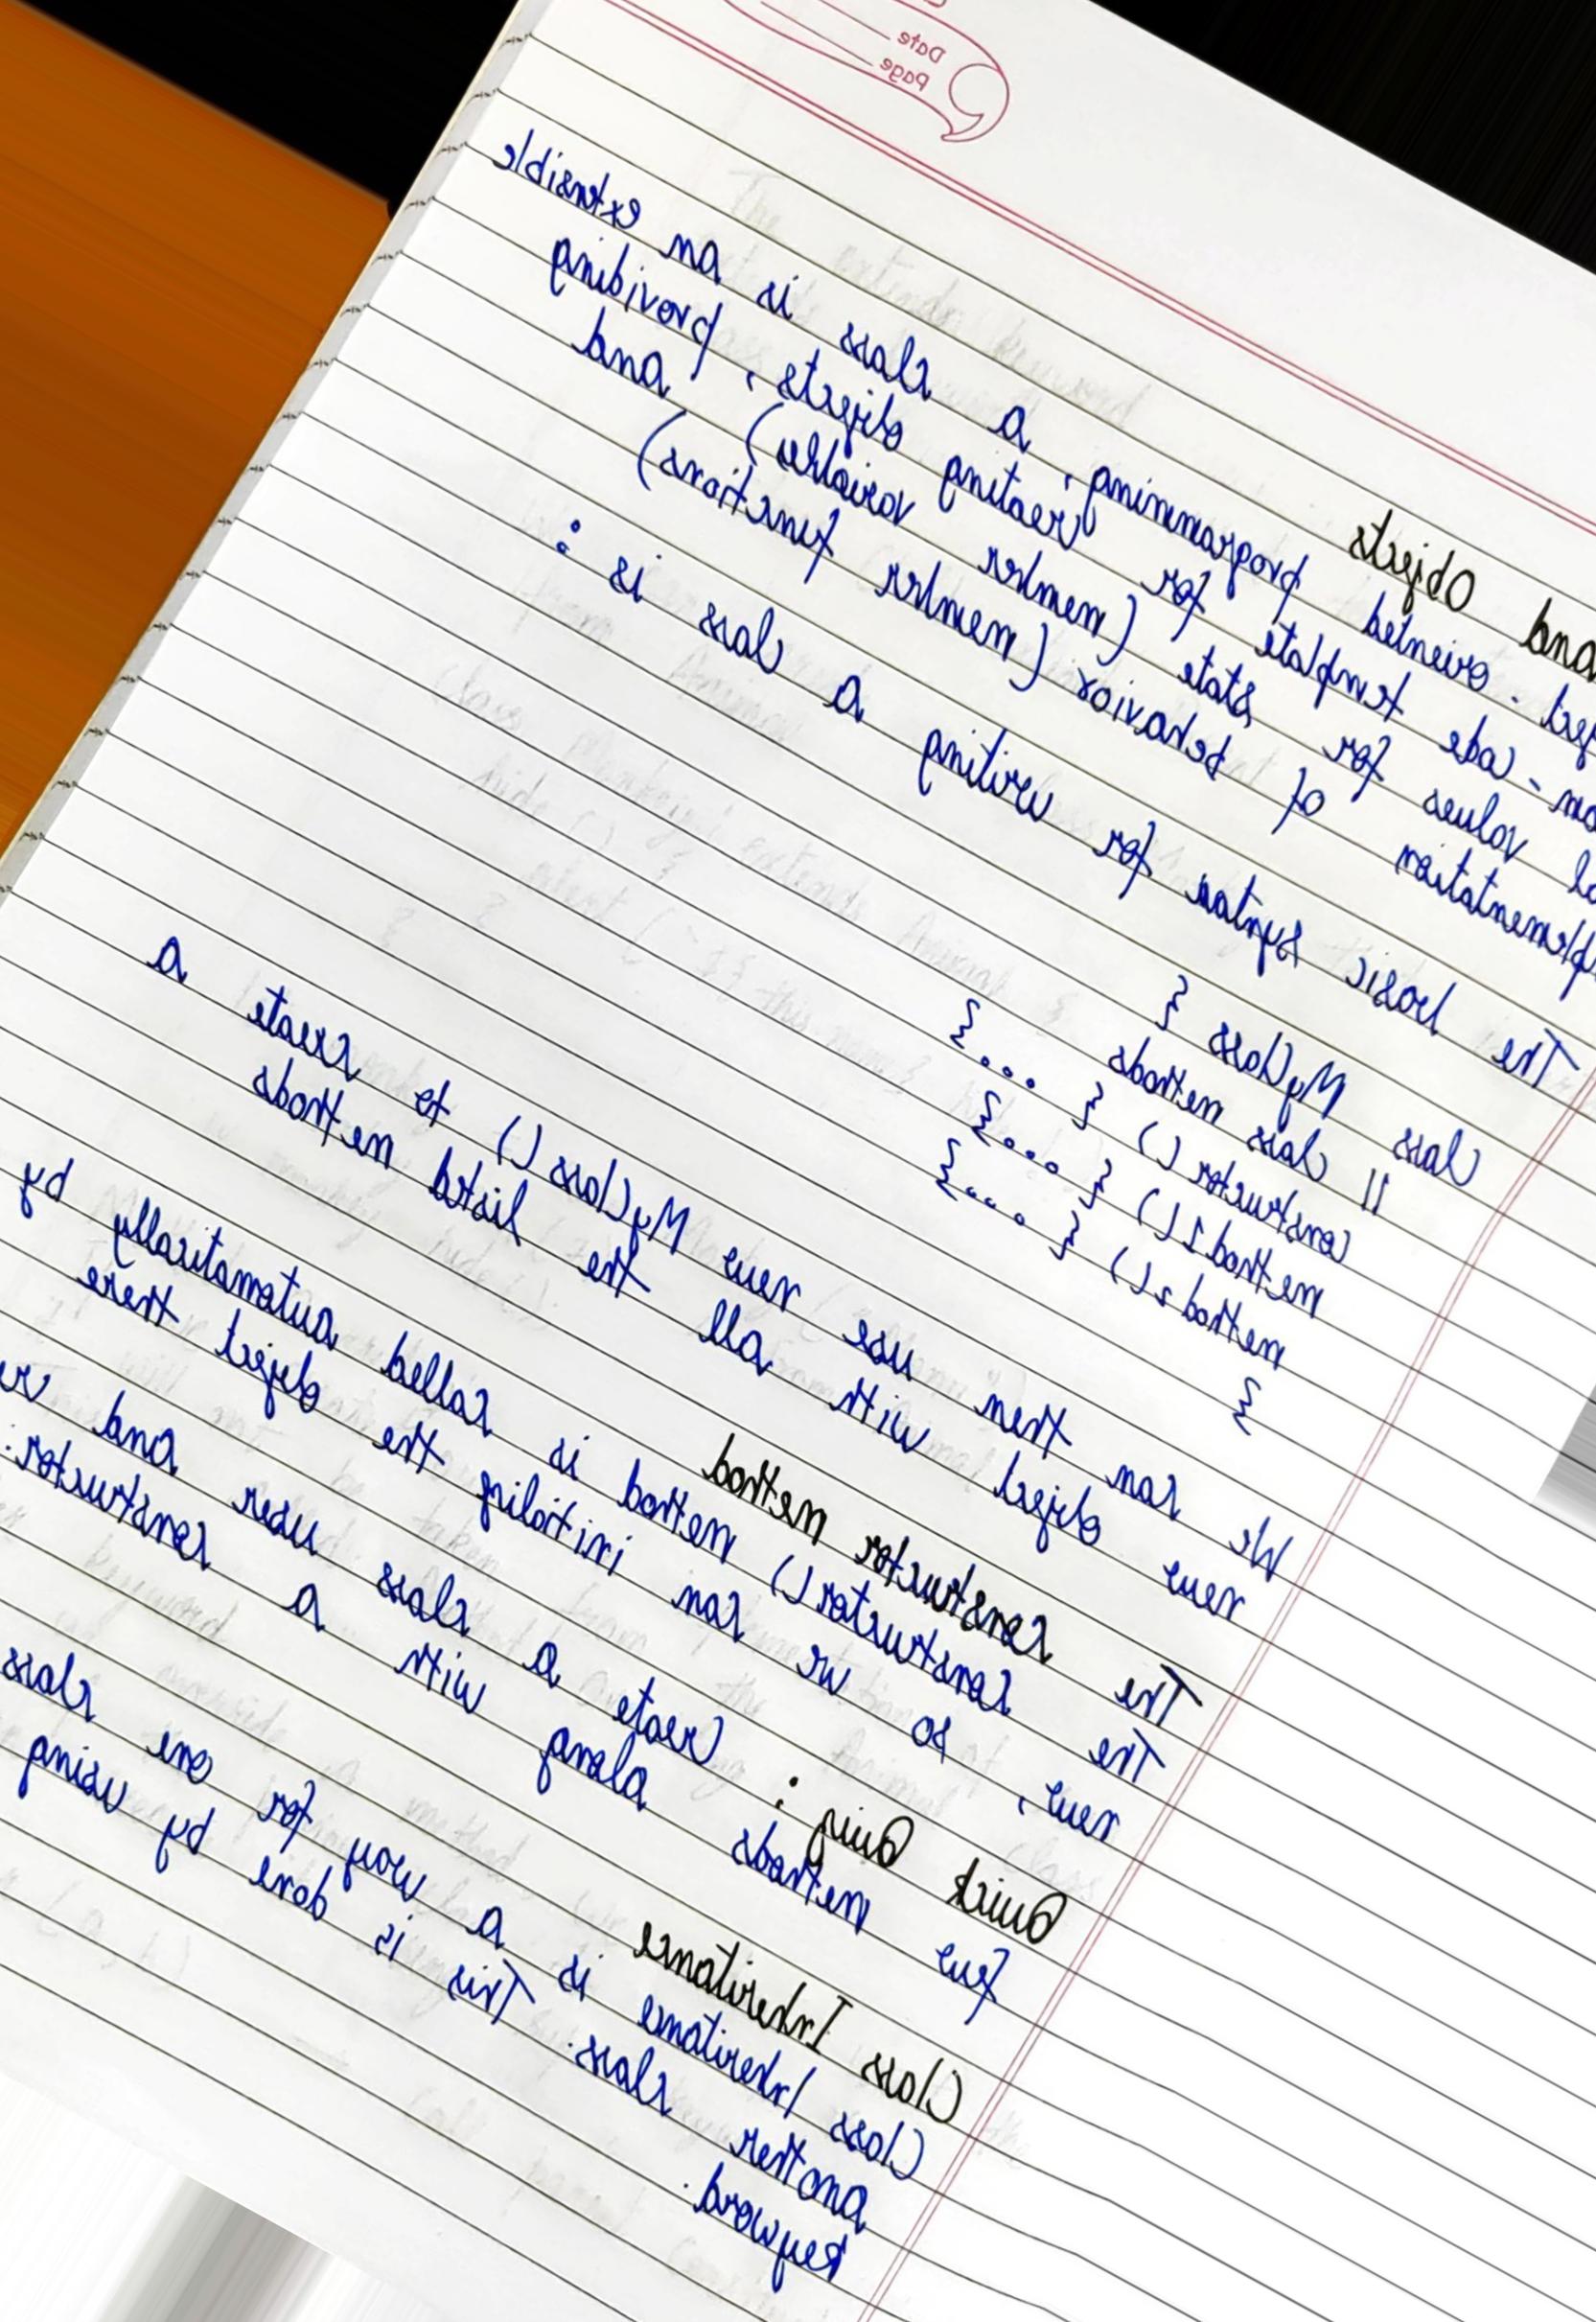 Date
Page
and Objects
oriented programming, a class is an extensible
- code template for creating objects, providing
values for state (member variables) and
of behavior (member functions)
The basic syntax for writing a class is :
Class MyClass {
// class methods
constructor () { ... }
method 1() { ... }
method 2() { ... }
}
We can then use new MyClass() to create a
new object with all the listed methods
The constructor method
The constructor() method is called automatically by
new, so we can the object there
Quick Quiz : Create a class user and
few methods along with a constructor.
Class Inheritance
Class Inheritance is a way for one class
another class. This is done by using
keyword.